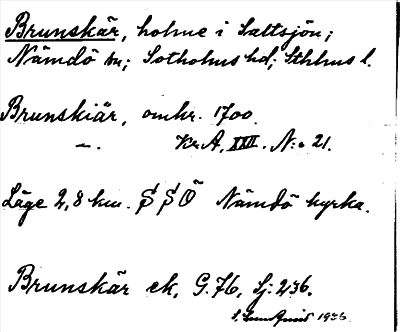 Brunskär, holme i Saltsjön;
Nämdö sn; Sotholms hd; Sthlms l.
Brunskiär, omkr. 1700.
—. Kr. A, XXII. N:o 21.
Läge 2,8 km. S S Ö Nämdö kyrka.
Brunskär ek. G. 76, Sj: 236.
1936